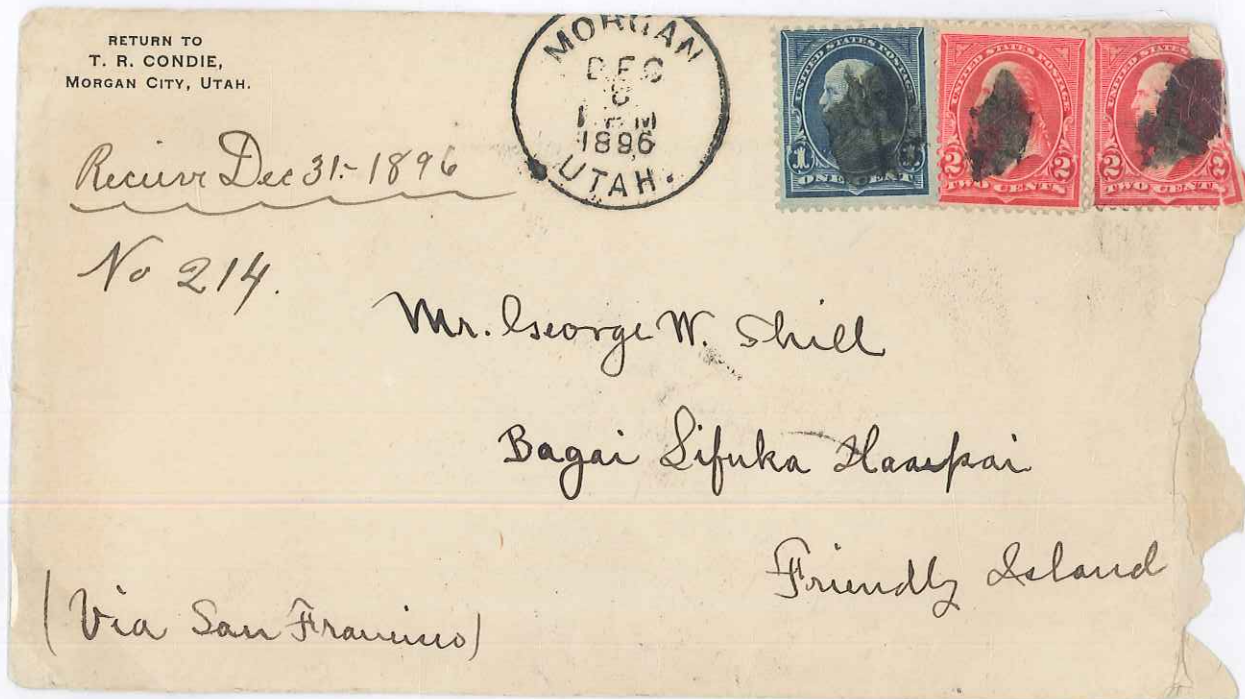 RETURN TO
T. R. CONDIE,
MORGAN CITY, UTAH.
MORGAN
DEC
1896
UTAH.
UNITED STATES POSTAGE
1
ONE CENT
UNITED STATES POSTAGE
2 2
TWO CENTS
UNITED STATES
2 2
TWO CENTS
Recieve Dec 31 - 1896
No 214.
Mr. George W. Shill
Bagai Lifuka Haapai
Friendly Island
(Via San Francisco)